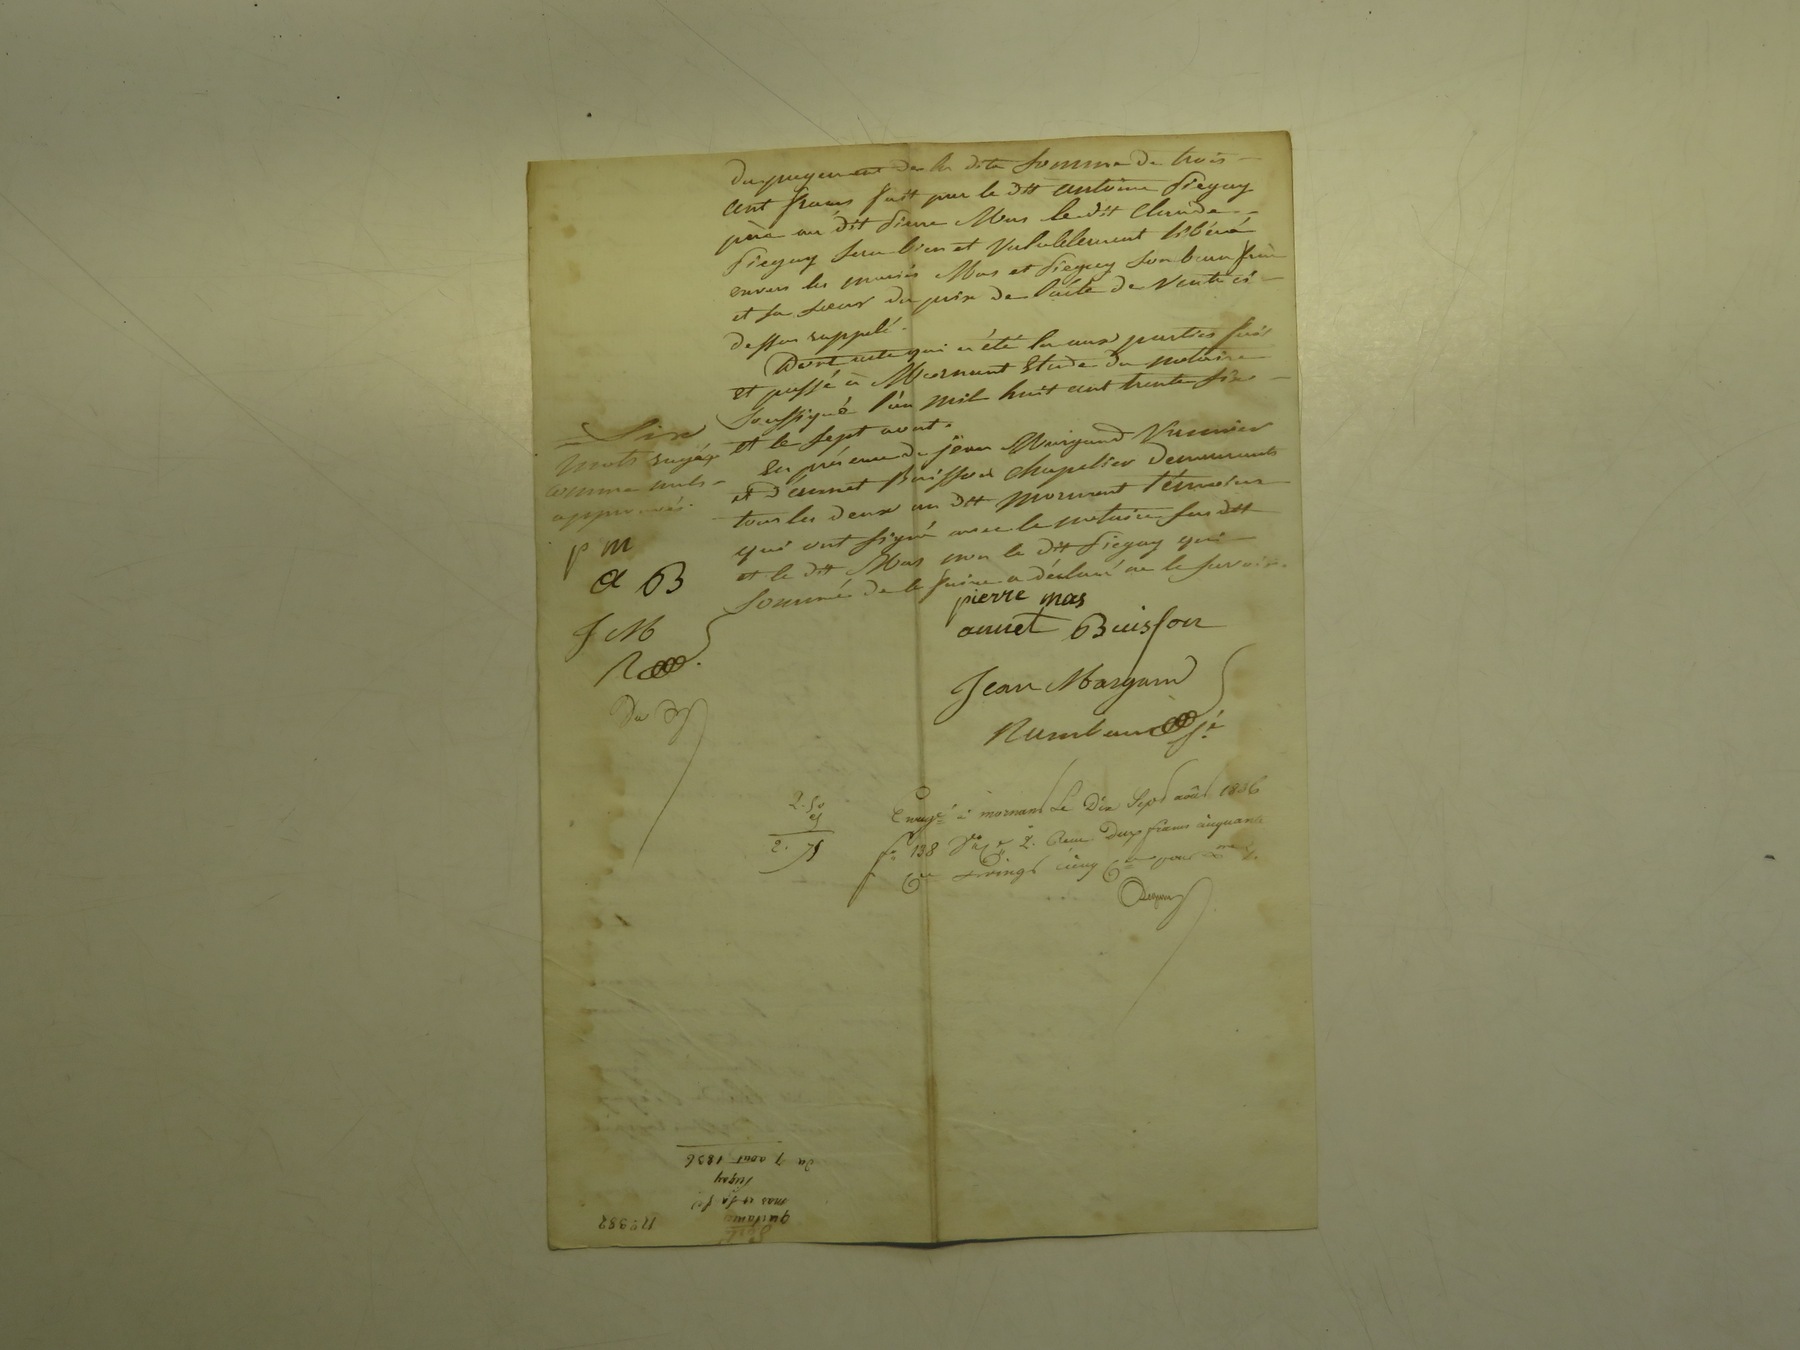 du payement de la dite somme de trois
cent francs fait par le dit antoine Piegay
père au dit Pierre Mas le dit Claude
Piegay sera bien et valablement libéré
envers les mariés Mas et Piegay son beau frère
et sa soeur du prix de l'acte de vente ci
dessus rappelé.
Dont acte qui a été lu aux parties fait
et passé à Mornant Etude du notaire
soussigné l'an mil huit cent trente six
et le sept aout.
En présence de jean Margand
et d'annet Buisson chapelier demeurants
tous les deux au dit mornant témoins
qui ont signé avec le notaire susdit
et le dit Mas non le dit Piegay qui
sommé de le faire a déclaré ne le savoir.
Six
mots rayés
comme nuls
approuvés.
p m
a B
J M
R
pierre mas
annet Buisson
Jean Margand
2. 50
25
2. 75
Enregé à mornant Le Dix Sept août 1836
fo 138 Vo Ce 2. Reçu Deux francs cinquante
Ces vingt cinq Ces pour
No 982
quittance
mas et sa fe
Piegay
du 7 aout 1836